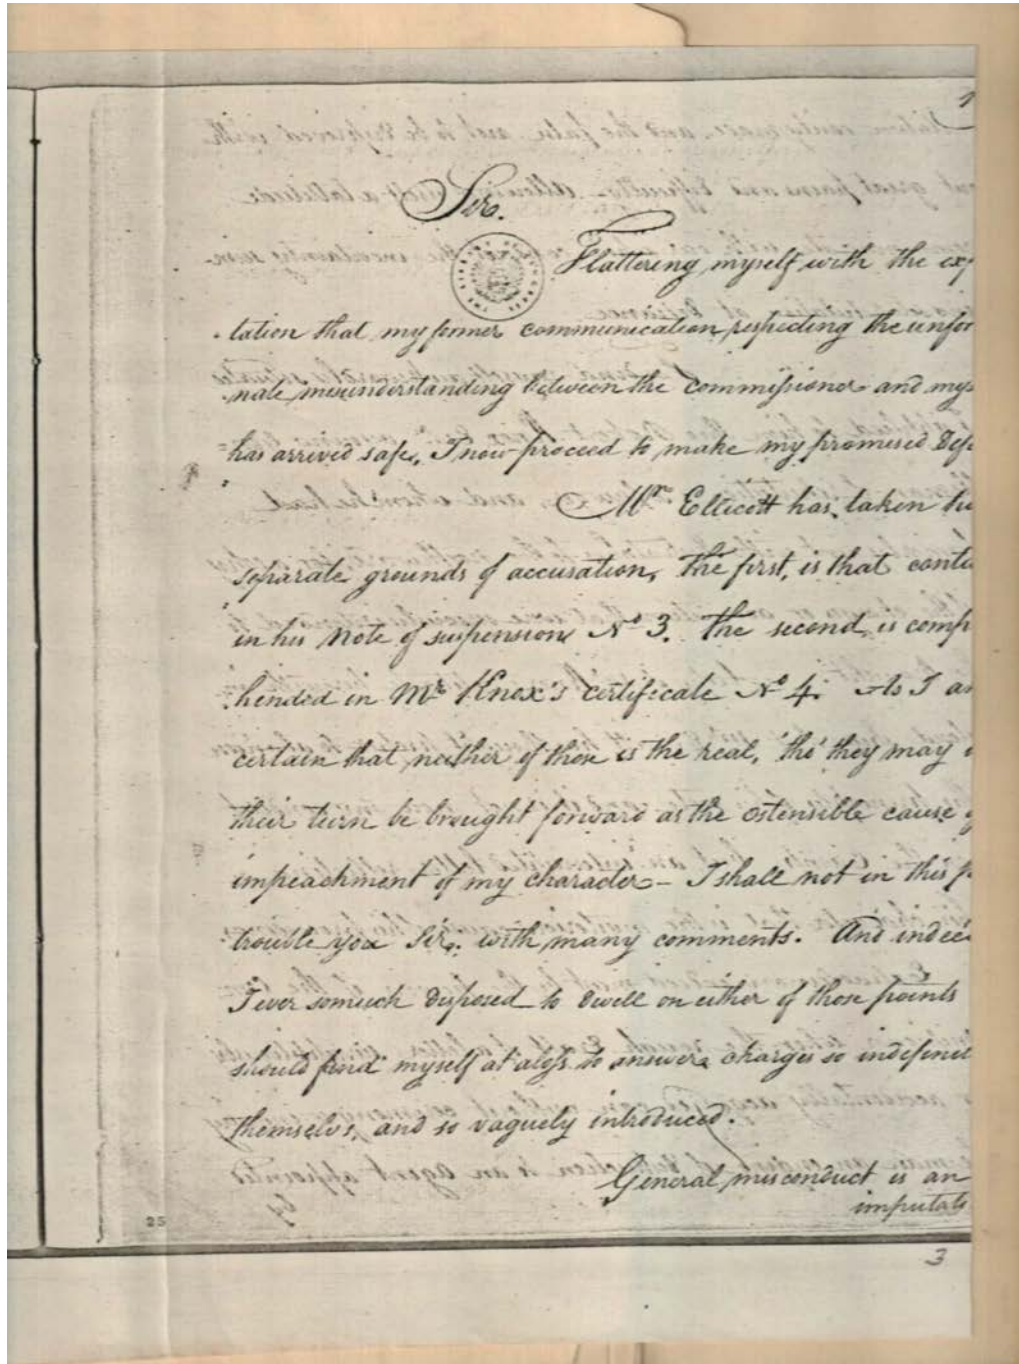 1
Sir.
Flattering myself with the exp
tation that my former communication respecting the unfor
nate misunderstanding between the commissioner and mys
has arrived safe, I now proceed to make my promised Defe
Mr Ellicott has taken
separate grounds of accusation, The first, is that conta
in his Note of suspension No 3. The second is comp
hended in Mr Knox's certificate No 4. As I am
certain that neither of these is the real, tho' they may
their turn be brought forward as the ostensible cause
impeachment of my character – I shall not in this
trouble you Sir. with many comments. And indee
I ever somuch disposed to dwell on either of those points
should find myself at a loss to answer charges so indefinit
themselves, and so vaguely introduced.
General misconduct is an
imputati
25
3